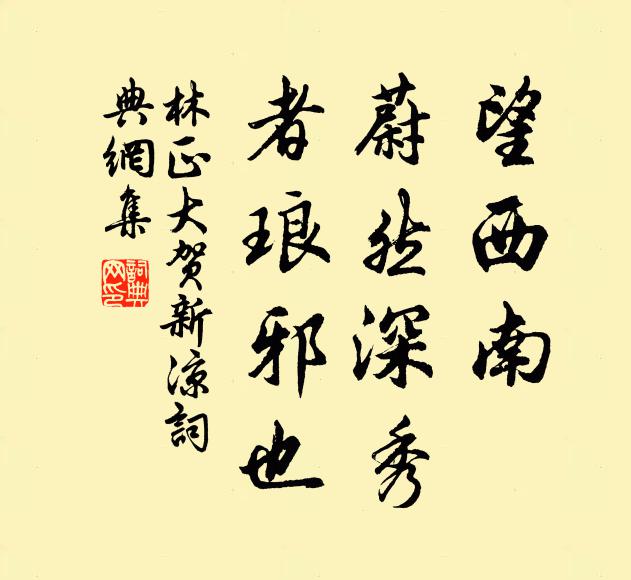 望西南
蔚然深秀
者琅邪也
林正大贺新凉詞
典網集
詞典
网印